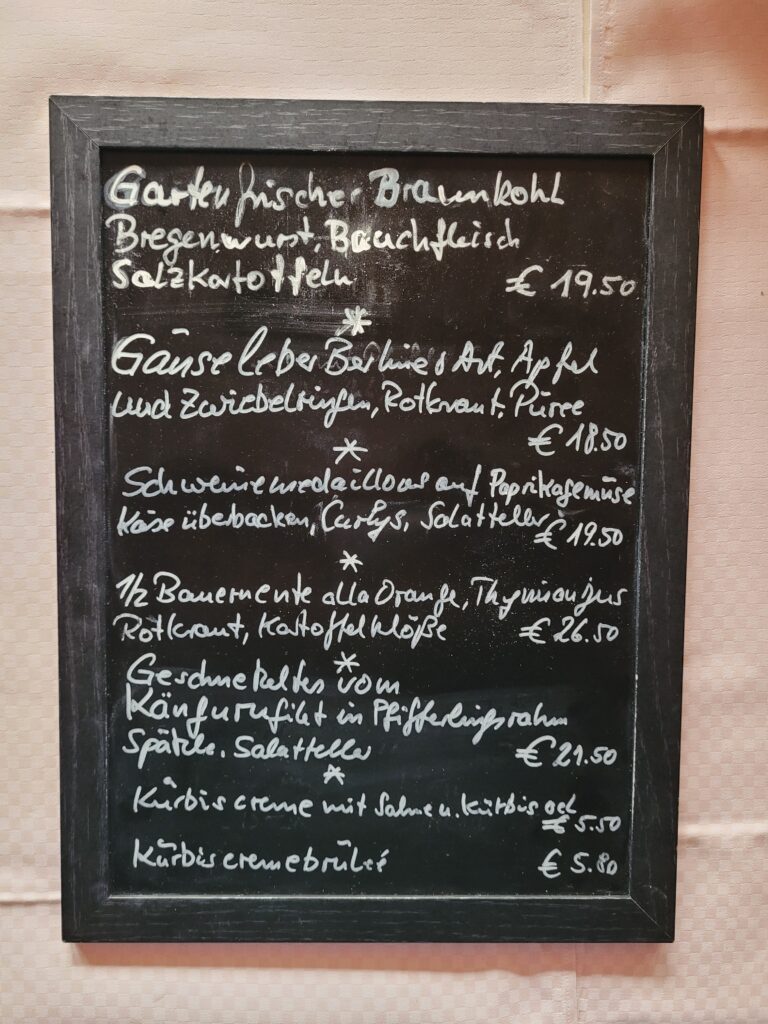 Gartenfrischer Braunkohl
Bregenwurst, Bauchfleisch
Salzkatoffeln € 19.50
*
Gänseleber Berliner Art, Apfel
und Zwiebelringen, Rotkraut, Püree
€ 18.50
*
Schweinemedaillons auf Paprikagemüse
Käse überbacken, Curlys, Salatteller € 19.50
*
1/2 Bauernente alla Orange, Thymianjus
Rotkraut, Kartoffelklöße € 26.50
*
Geschnetzeltes vom
Känguruhfilet in Pfifferlingsrahm
Spätzle, Salatteller € 21.50
*
Kürbiscreme mit Sahne u. Kürbisoel
€ 5.50
Kürbiscremebrûleé € 5.80